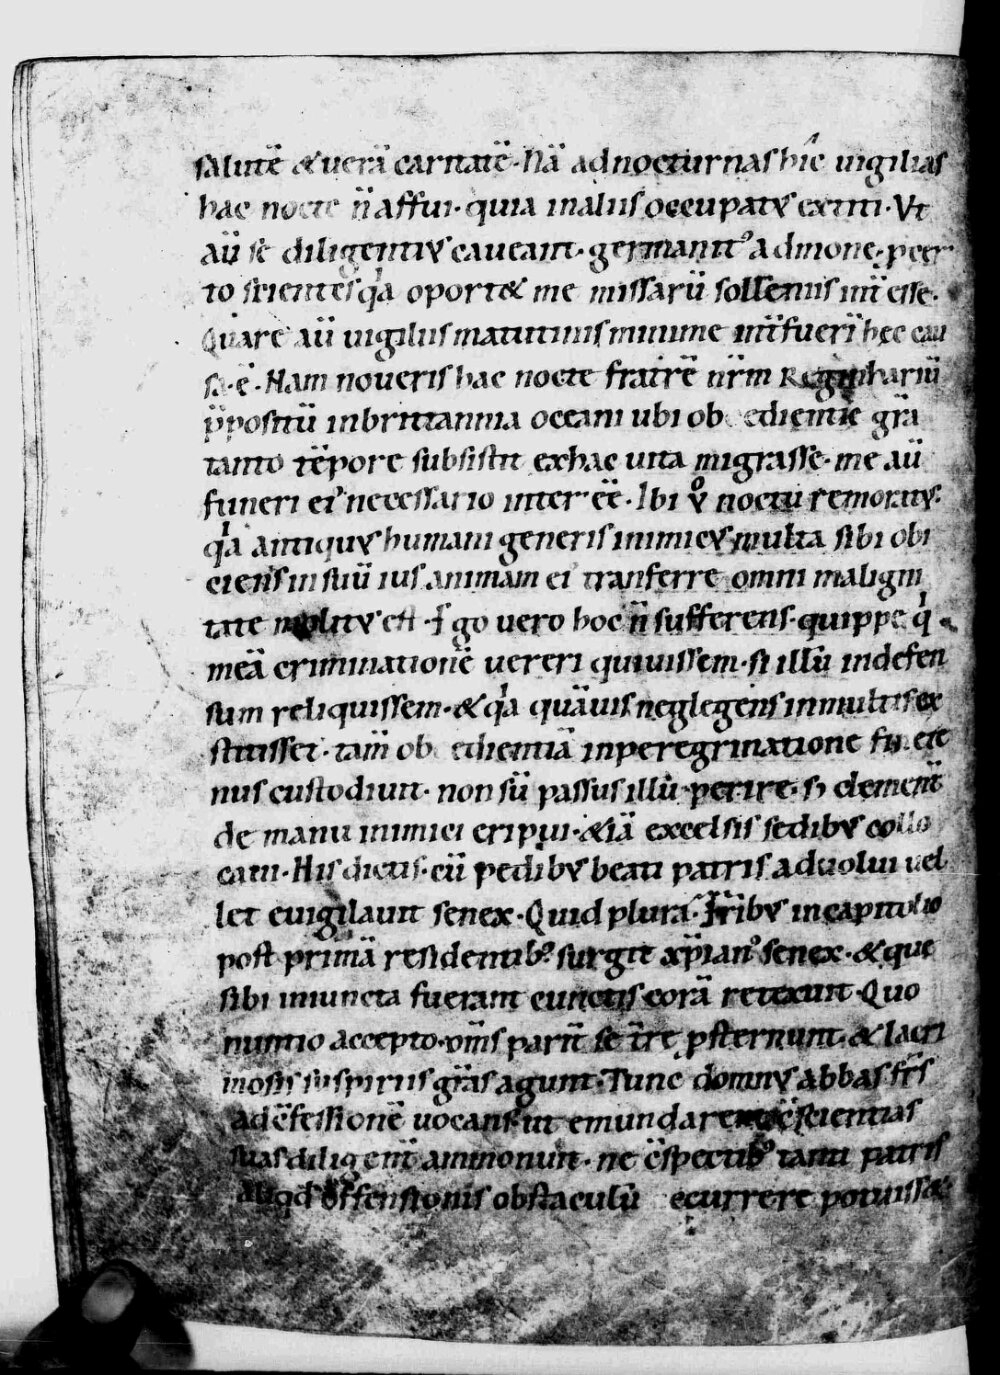 salutē & uerā caritatē. Nā ad nocturnas hic uigilias
hac nocte n̄ affui. quia in aliis occupatus extiti. Vt
aū se diligentius caueant. germanit᾽ admone. p cer
to scientes qͥa oportet me missarū sollenniis int̄ esse.
Quare aū uigiliis matutinis minime int̄fueri hec cau
sa. ē. Nam noueris hac nocte fratrē nr̄m
p̄positū in brittannia oceani ubi ob edientie grā
tanto tēpore subsistit ex hac uita migrasse. me aū
funeri ei᾽ necessario inter ēē. Ibi ůͦ noctu remoratus.
qͥa antiquus humani generis inimicus multa sibi obi
ciens in suū ius animam ei᾽ tranferre omni maligni
tate molitus est. Ego vero hoc n̄ sufferens. quippe qͥ
meā criminationē uereri quiuissem. si illū indefen
sum reliquissem. & qͥa quāuis neglegens in multis ex
stitisset. tam̄ ob edientiā in peregrinatione
nus custodiuit. non sū passus illū perire. s; clement̄
de manu inimici eripui. & iā excelsis sedibus collo
caui. His dictis. cū pedibus beati patris aduolui uel
let euigilauit senex. Quid plura. Fr̄ibus in capitulio
post primā residentib᾽. surgit xp̄ian᾽ senex. & que
sibi iniuncta fuerant cunctis corā retexuit. Quo
nuntio accepto. om̄s parit̄ se īr̄e p̄sternunt. & lacri
mosis suspiriis grās agunt. Tunc domnus abbas fr̄s
ad c̄fessionē uocans. ut emundarent c̄scientias
suas diligent̄ ammonuit. ne c̄spectib᾽ tanti patris
aliqͥd offensionis obstaculū ecurrere potuisset